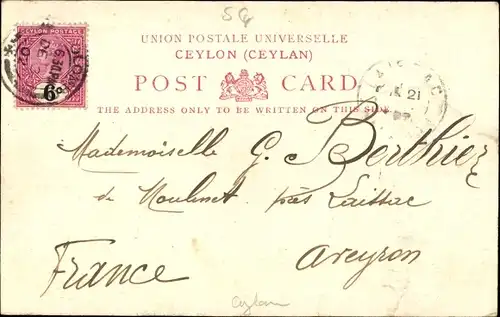 SG
UNION POSTALE UNIVERSELLE
CEYLON (CEYLAN)
POST CARD
THE ADDRESS ONLY TO BE WRITTEN ON THIS SIDE
CEYLON POSTAGE
6
21
Mademoiselle G. Berthiez
de Moulinet près Laissac
Aveyron
France
Ceylan